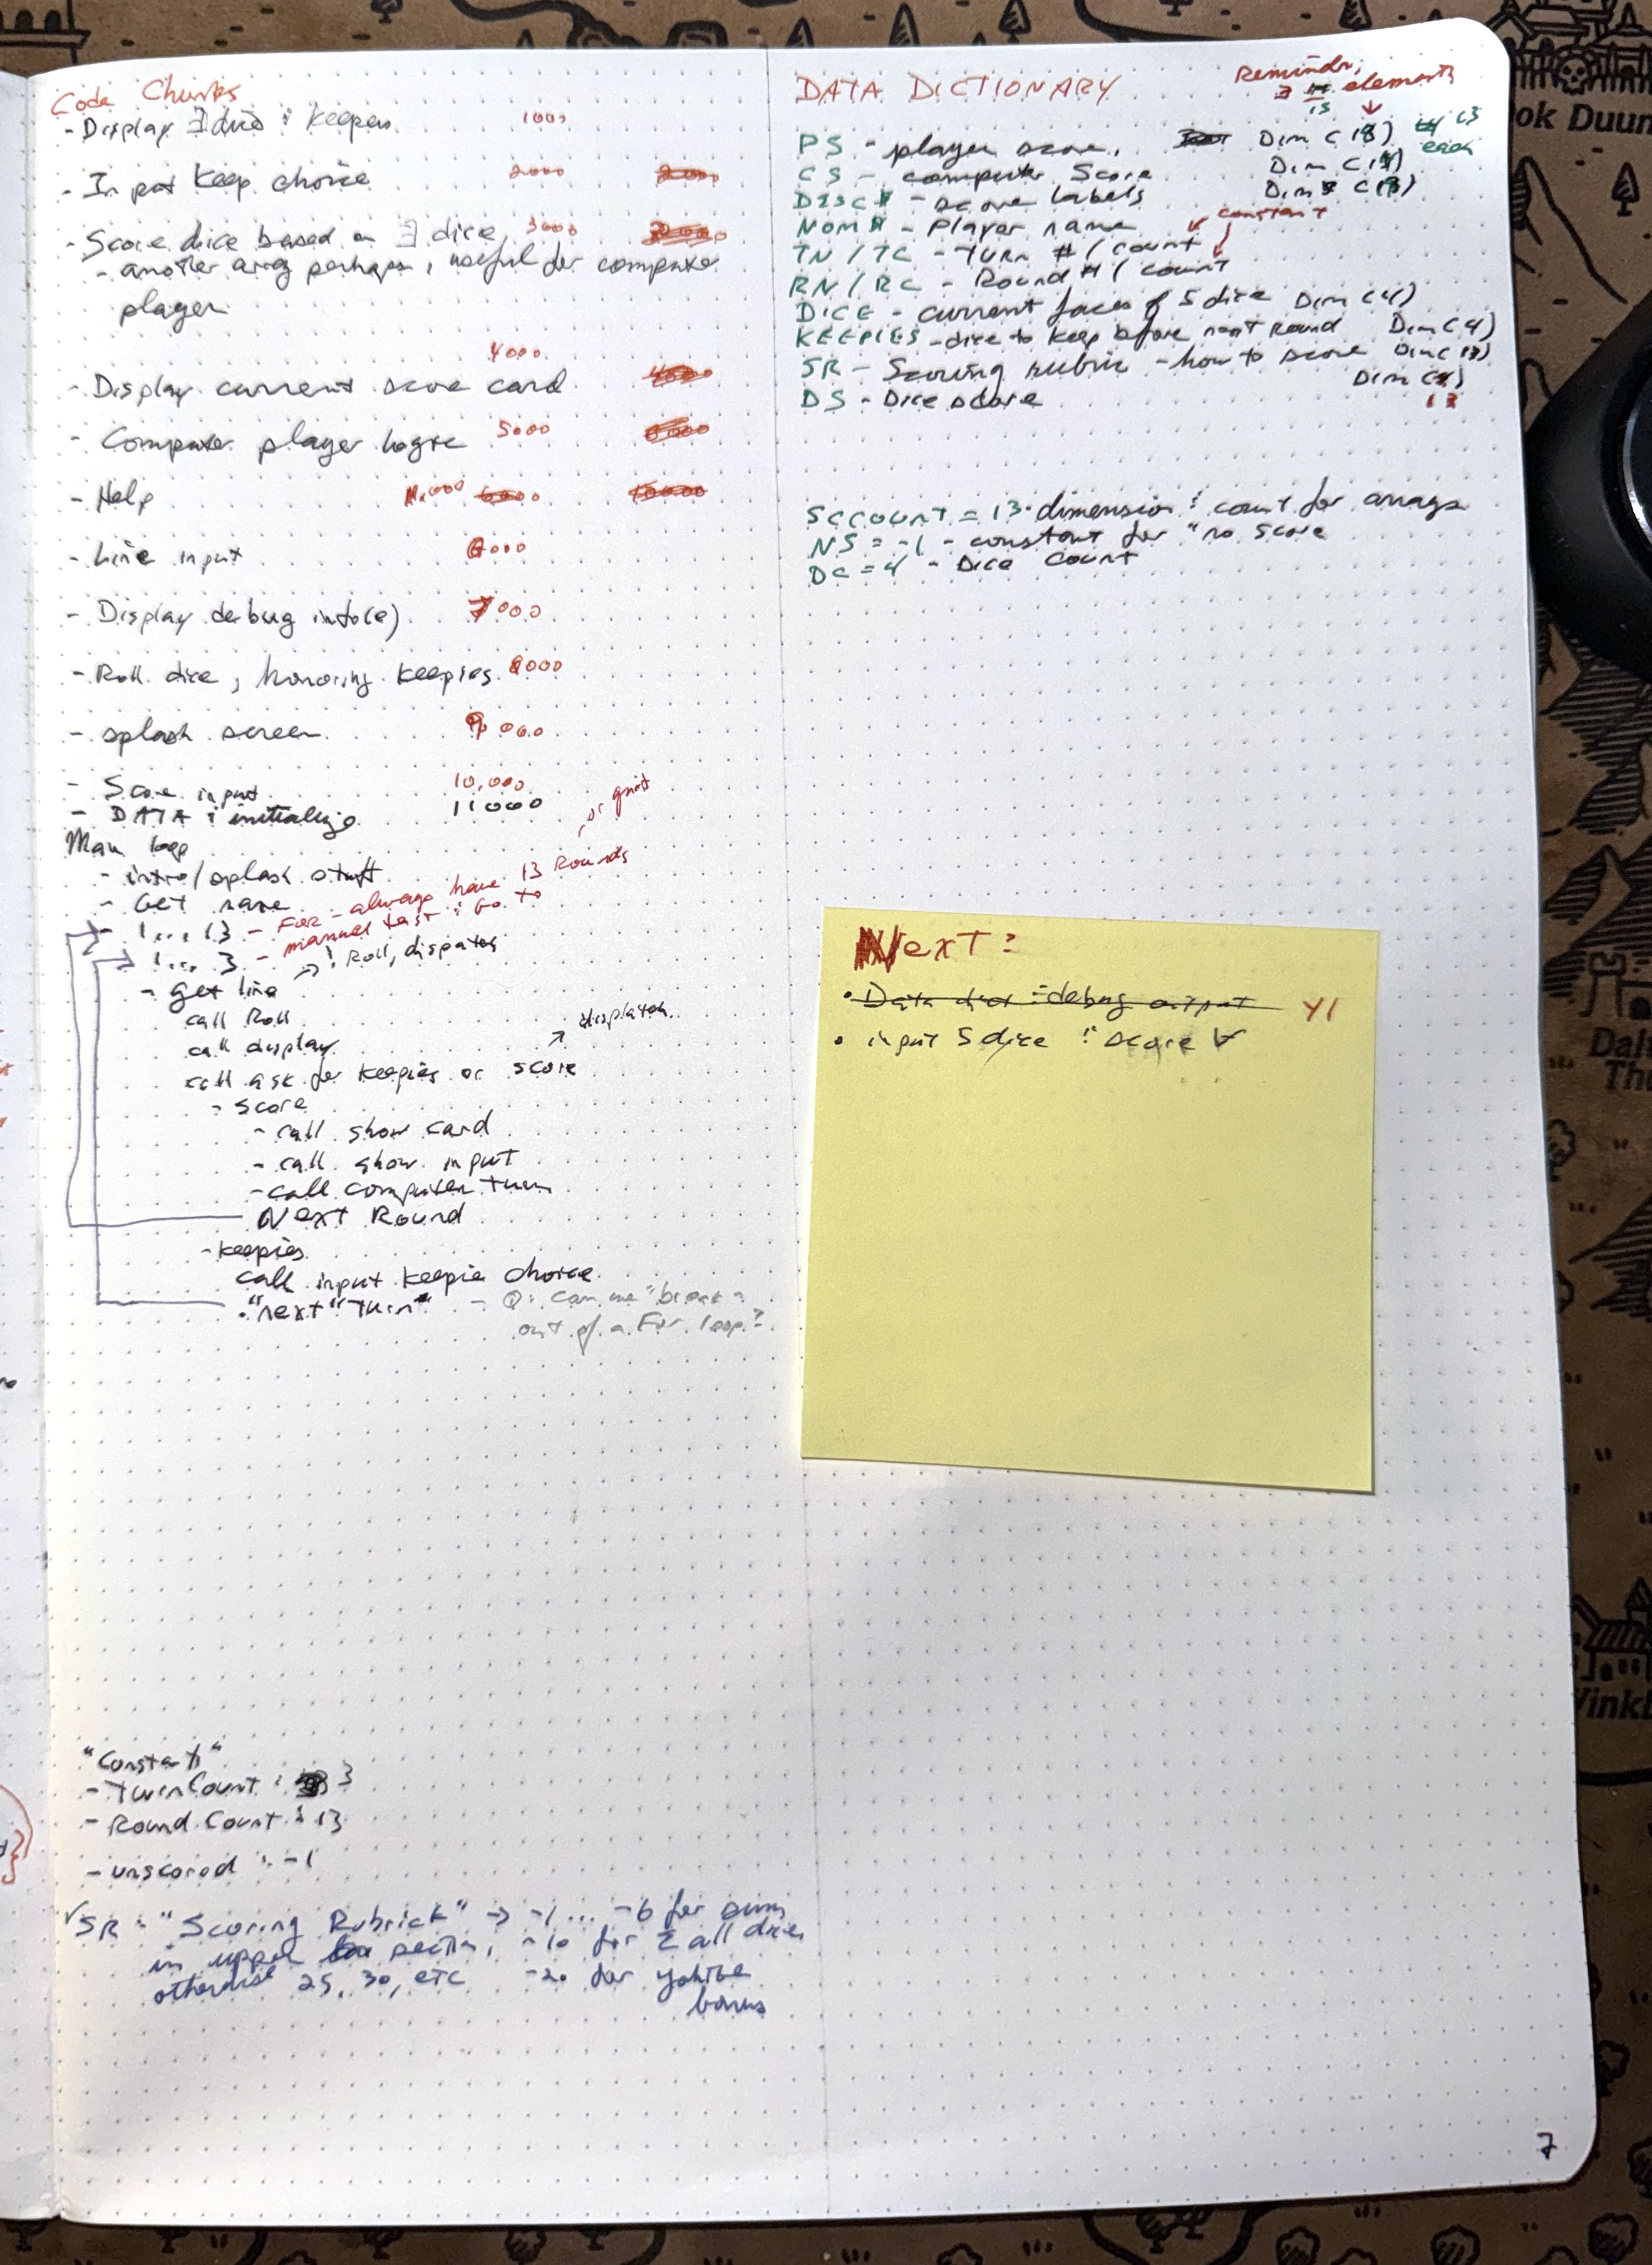 Code Chunks
- Display ∃ dice & keepers 1000
- Input keep choice 2000
- Score dice based on ∃ dice 3000
- another arg perhaps, useful for computer
player
4000
- Display current score card
- Computer player logic 5000
- Help 11,000 6000 10000
- Line input 6000
- Display debug info(e) 7000
- Roll dice, honoring keepies 8000
- splash screen 9000
- Score input 10,000
- DATA & initialize 11000
Main loop
, or quit
- intro/splash stuff
- Get name
- 1... 13 - For - always have 13 Rounds
1... 3 - manual test & Go to
→ ! Roll, dispatch
- get line
call Roll
call display
dispatch
call ask for keepies or score
- score
- call show card
- call show input
- call computer turn
Next Round
- keepies
call input keepie choice
- "next" turn" - Q: Can we "break"
out of a For loop?
"Constants"
- Turn Count : 3
- Round Count : 13
- unscored : -1
√ SR : "Scoring Rubrick" → -1 ... -6 for sum
in upper section, -10 for Σ all dice
otherwise 25, 30, etc -20 for yahtzee
bonus
DATA DICTIONARY
Reminder,
is elements
PS - player score, Dim (13) 13
each
CS - computer Score Dim (13)
DISC$ - score labels Dim (13)
NOM$ - Player name
constant
TN/TC - Turn #/count
RN/RC - Round #/count
DICE - current faces of 5 dice Dim (4)
KEEPIES - dice to keep before next round Dim (4)
SR - Scoring rubric - how to score Dim (13)
DS - Dice score Dim
13
SCCOUNT = 13 - dimension & count for arrays
NS = -1 - constant for "no score
DC = 4 - Dice count
Next:
• Data dict & debug output Y1
• input 5 dice & score
7
ok Duun
Dal
Th